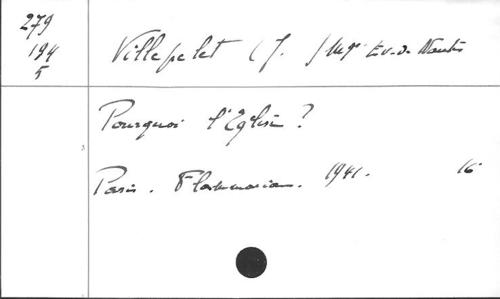 279
194
5
Villepelet (J.) Mgr Ev. de Nantes
Pourquoi l'Eglise ?
Paris. Flammarion. 1941. 16°